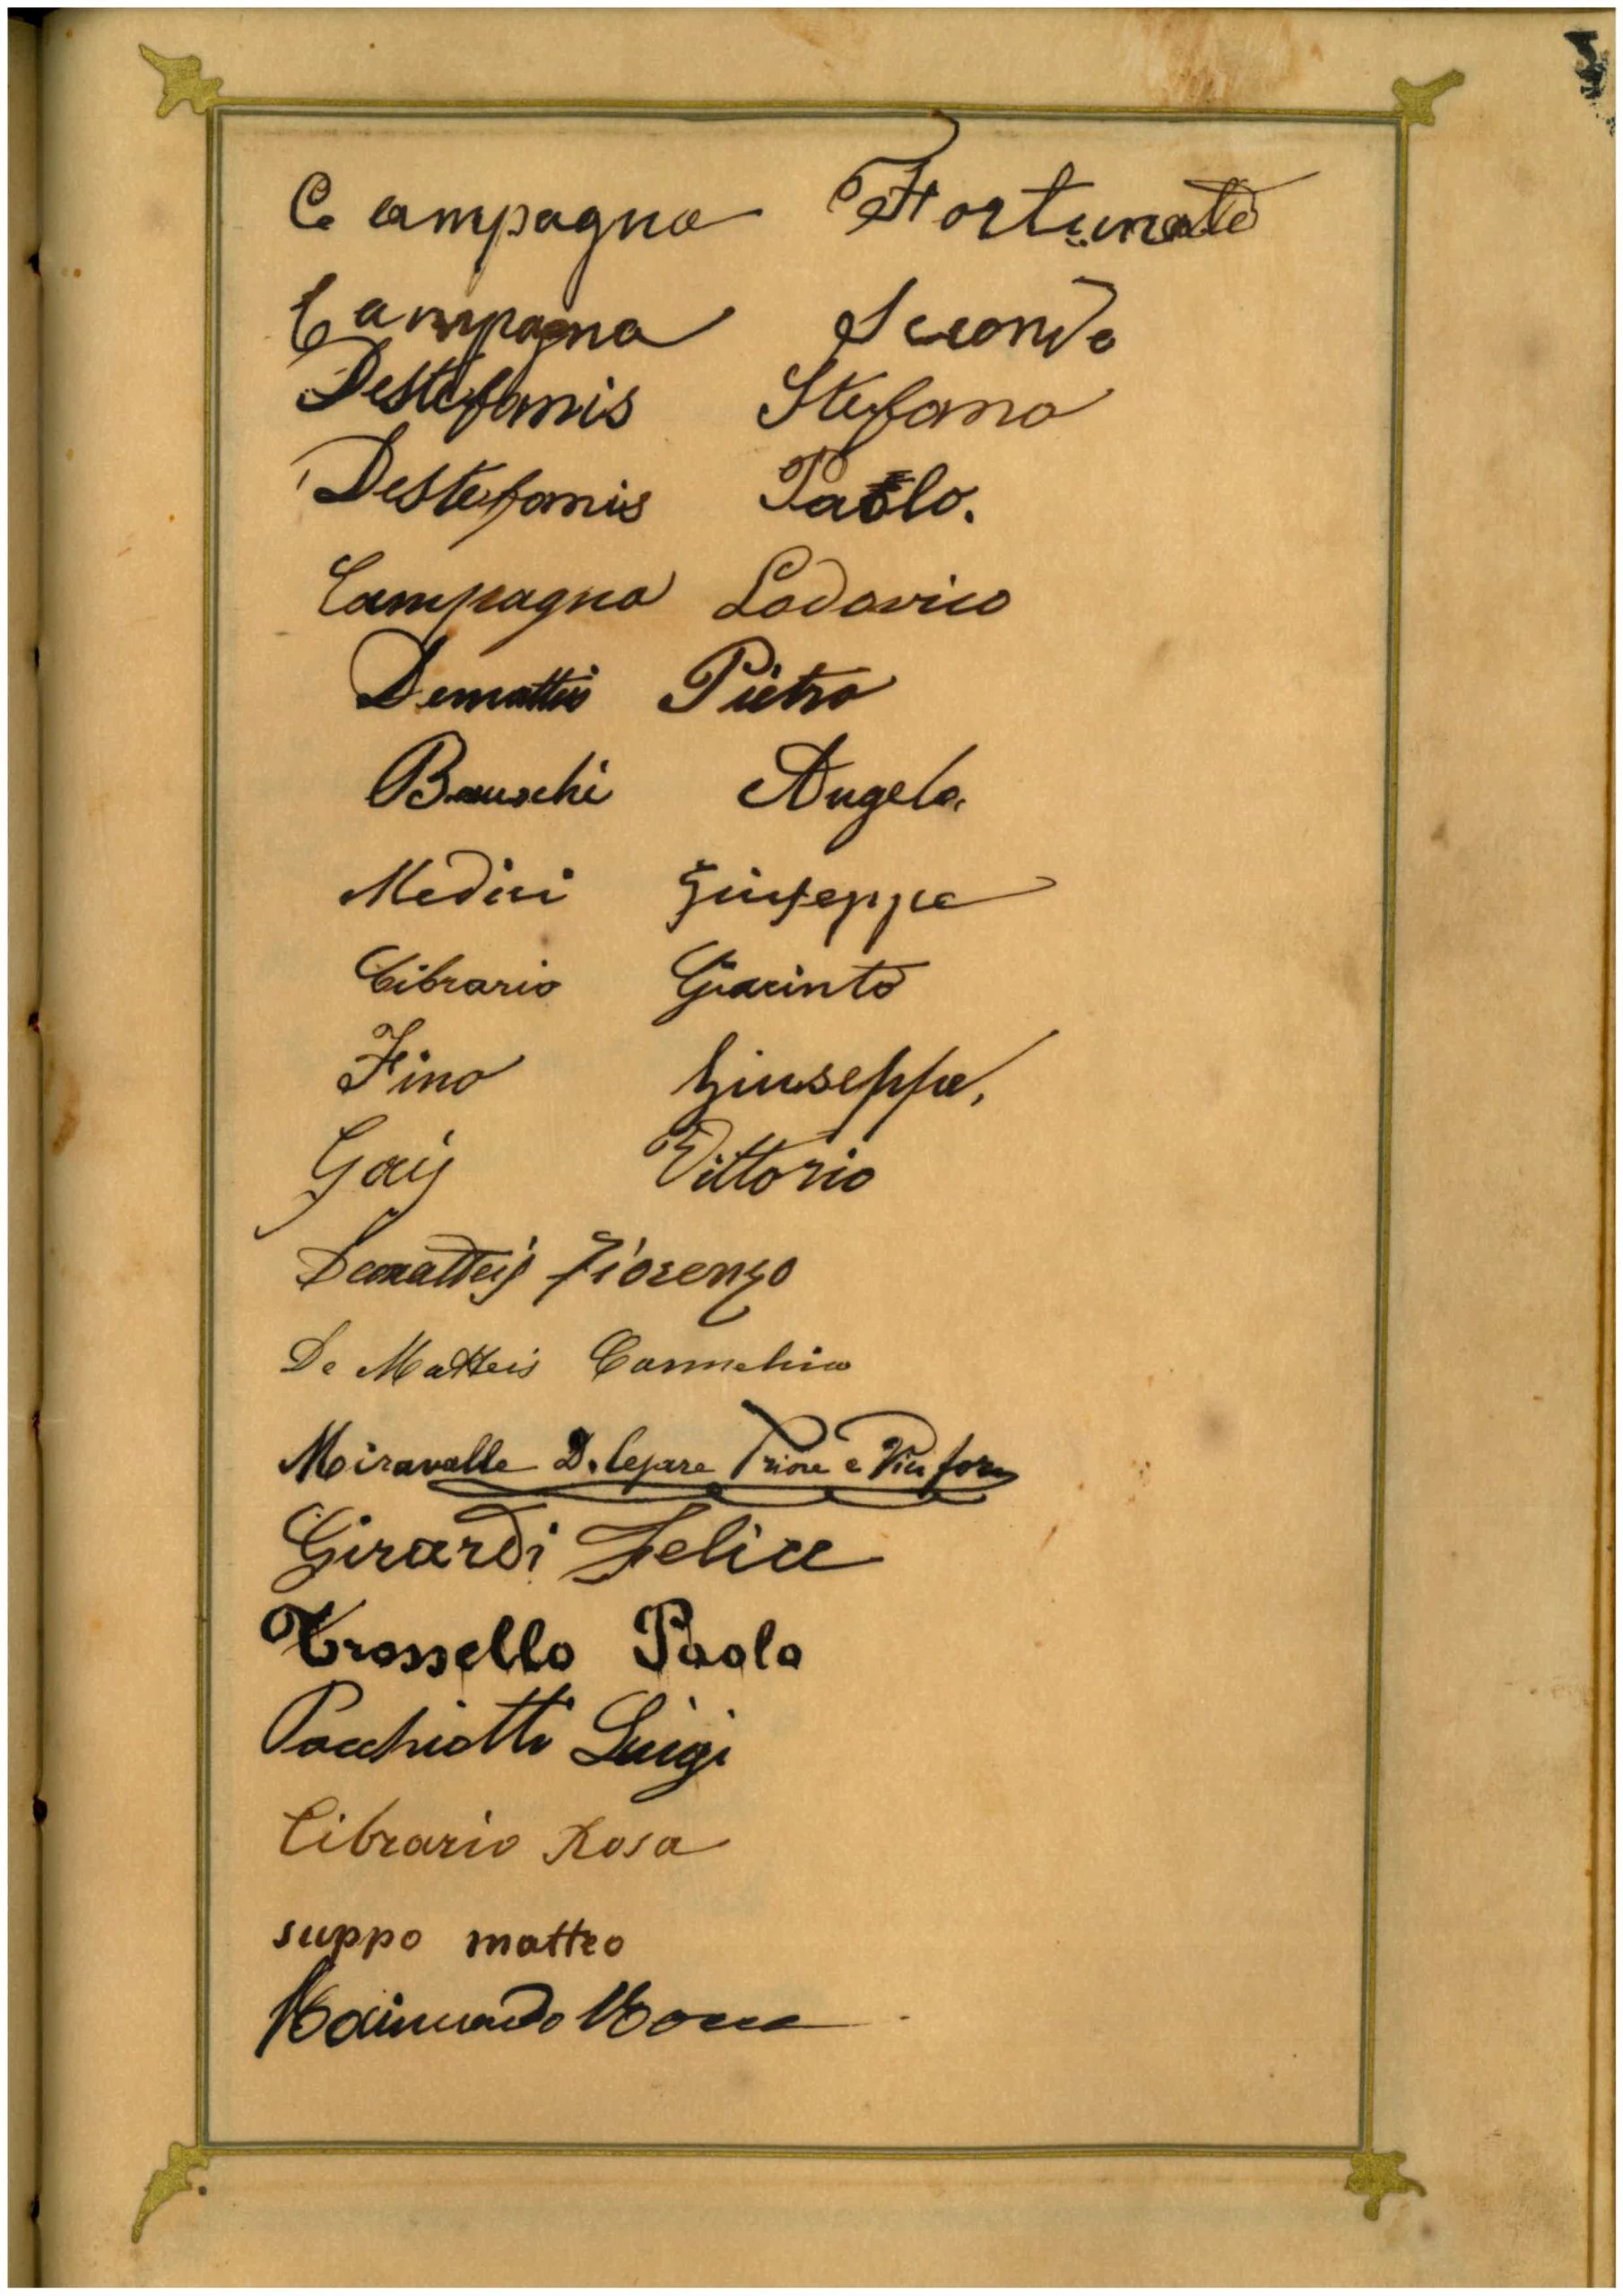 Campagna Fortunato
Campagna Secondo
Destefanis Stefano
Destefanis Paolo.
Campagna Lodovico
Dematteis Pietro
Angelo
Medici Giuseppe
Cibrario Giacinto
Fino Giuseppe,
Gaij Vittorio
Dematteis Fiorenzo
De Matteis
Miravalle D. Cesare Priore e Vic. for.
Girardi Felice
Trossello Paolo
Pocchiotti Luigi
Cibrario Rosa
suppo matteo
Raimondo